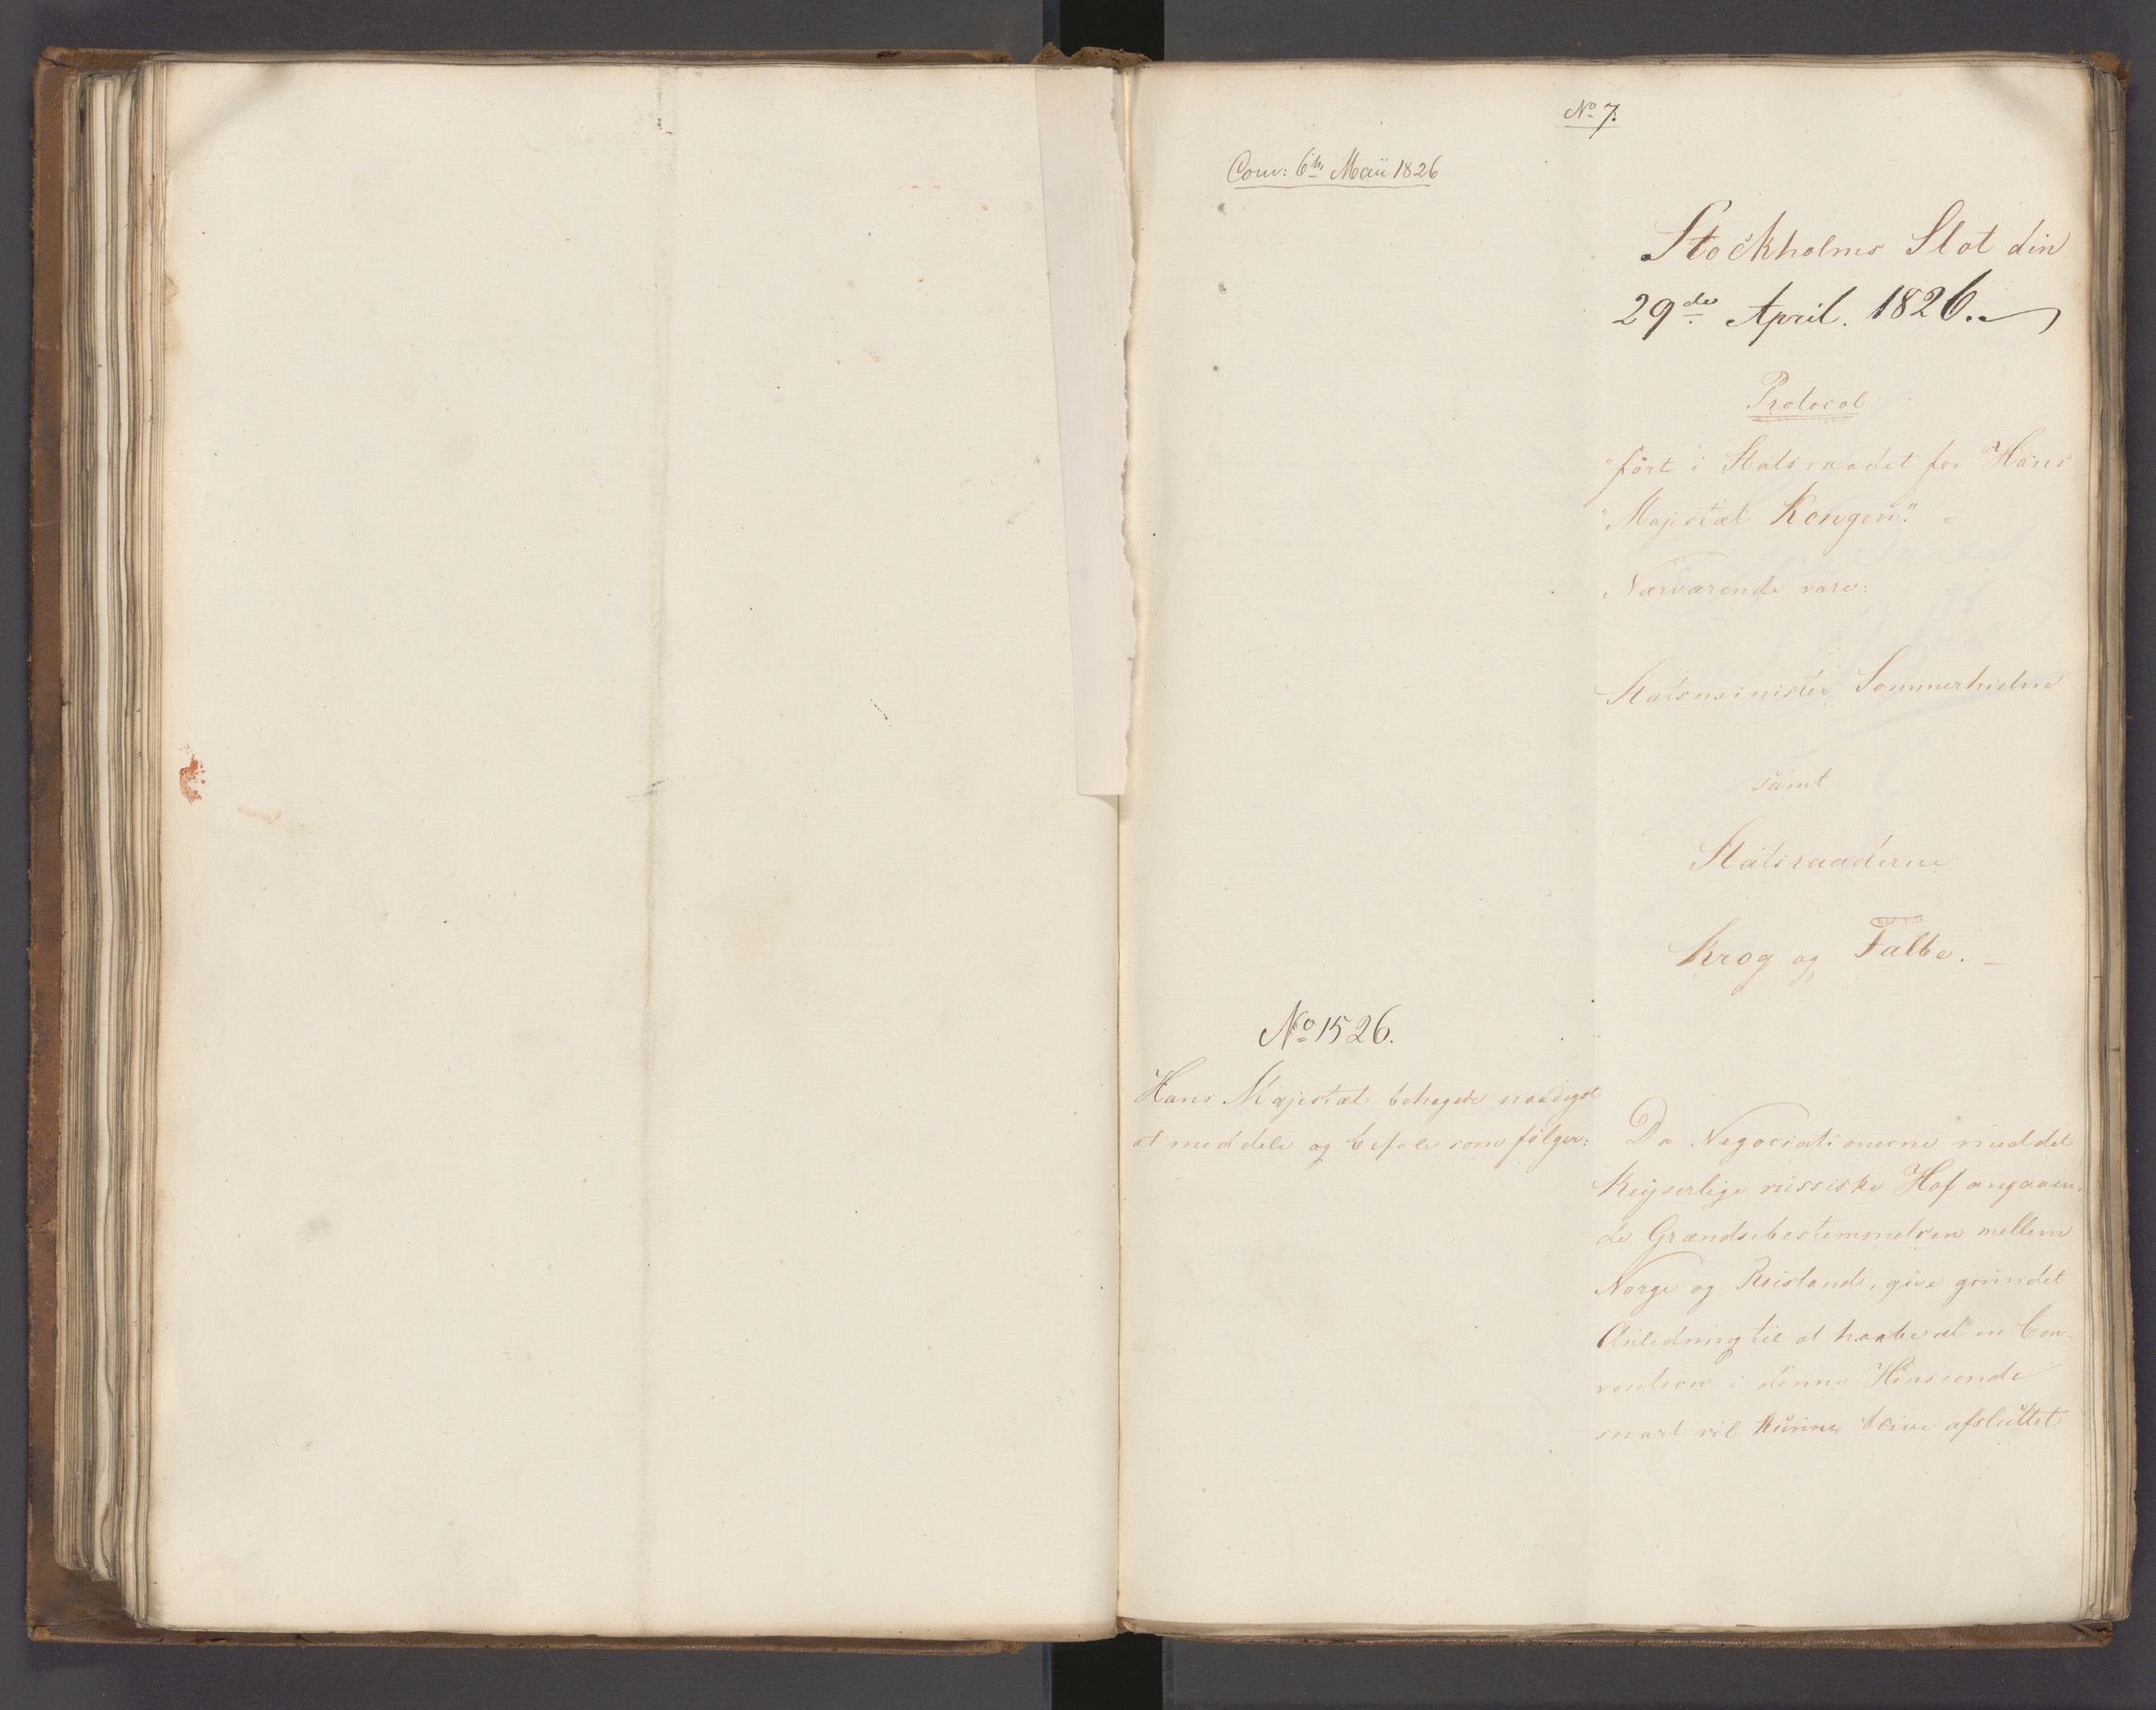 No 7.
Conv: 6te Maii 1826
Stockholms Slot den
29de April. 1826.
Protocol
"ført i Statsraadet for Hans
"Majestæt Kongen."
Nærværende vare:
Statsminister Sommerhielm
samt
Statsraaderne
Krog og Falbe.
No 1526.
Hans Majestæt behagede naadigst
at meddele og befale som følger:
Da Negociationerne med det
Keyserlige russiske Hof angaaen-
de Grændsebestemmelsen mellem
Norge og Rusland, give grundet
Anledning til at haabe at en Con-
vention i denne Henseende
snart vil kunne blive afsluttet